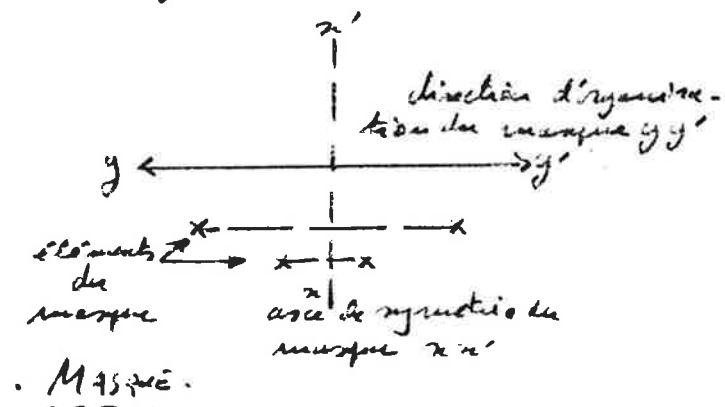 x'
direction d'organisa-
tion du masque yy'
y y'
éléments
du
masque
x
axe de symétrie du
masque xx'
. MASQUE.